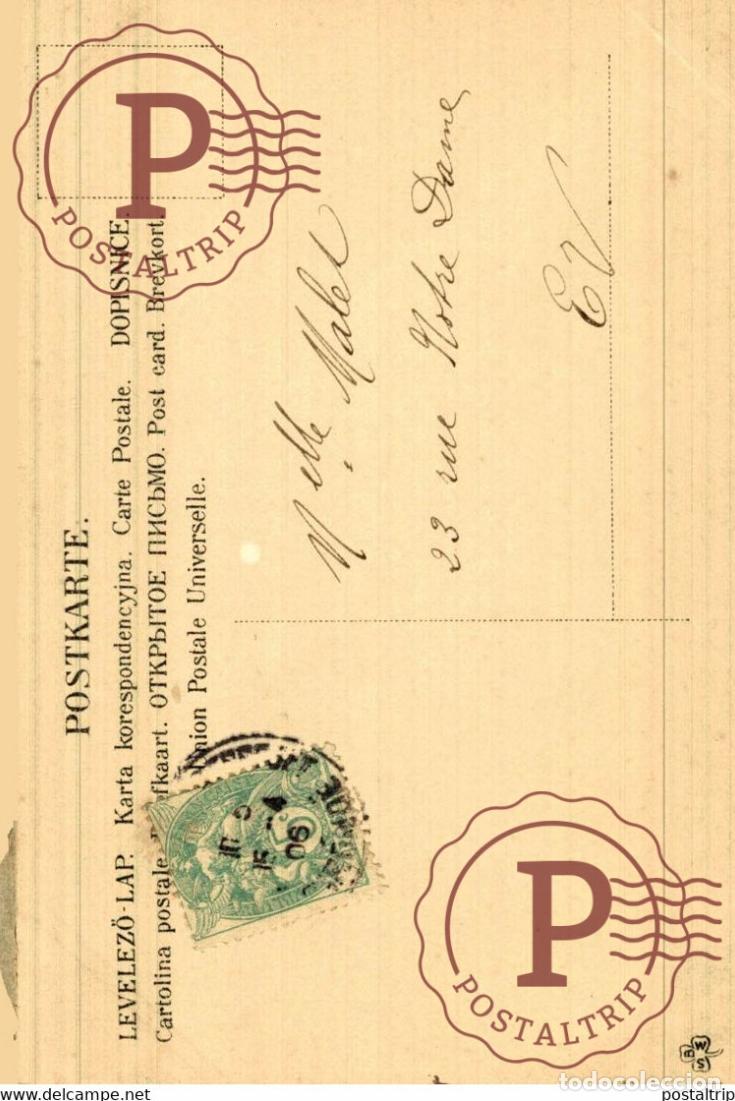 POSTKARTE.
LEVELEZŐ-LAP. Karta korespondencyjna. Carte Postale. DOPISNICE.
Cartolina postale. Briefkaart. ОТКРЫТОЕ ПИСЬМО. Post card. Brevkort.
Union Postale Universelle.
Melle Malet
23 rue Notre Dame
EV
15 -4
06
5
P
POSTALTRIP
P
POSTALTRIP
B W S
todocoleccion
www.delcampe.net
postaltrip